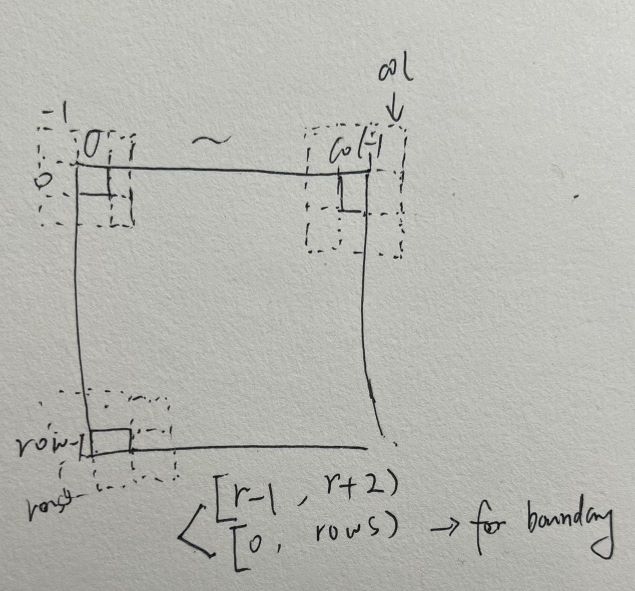 col
-1
0 ~ col-1
0
row-1
rows
[r-1, r+2)
[0, rows) → for boundary